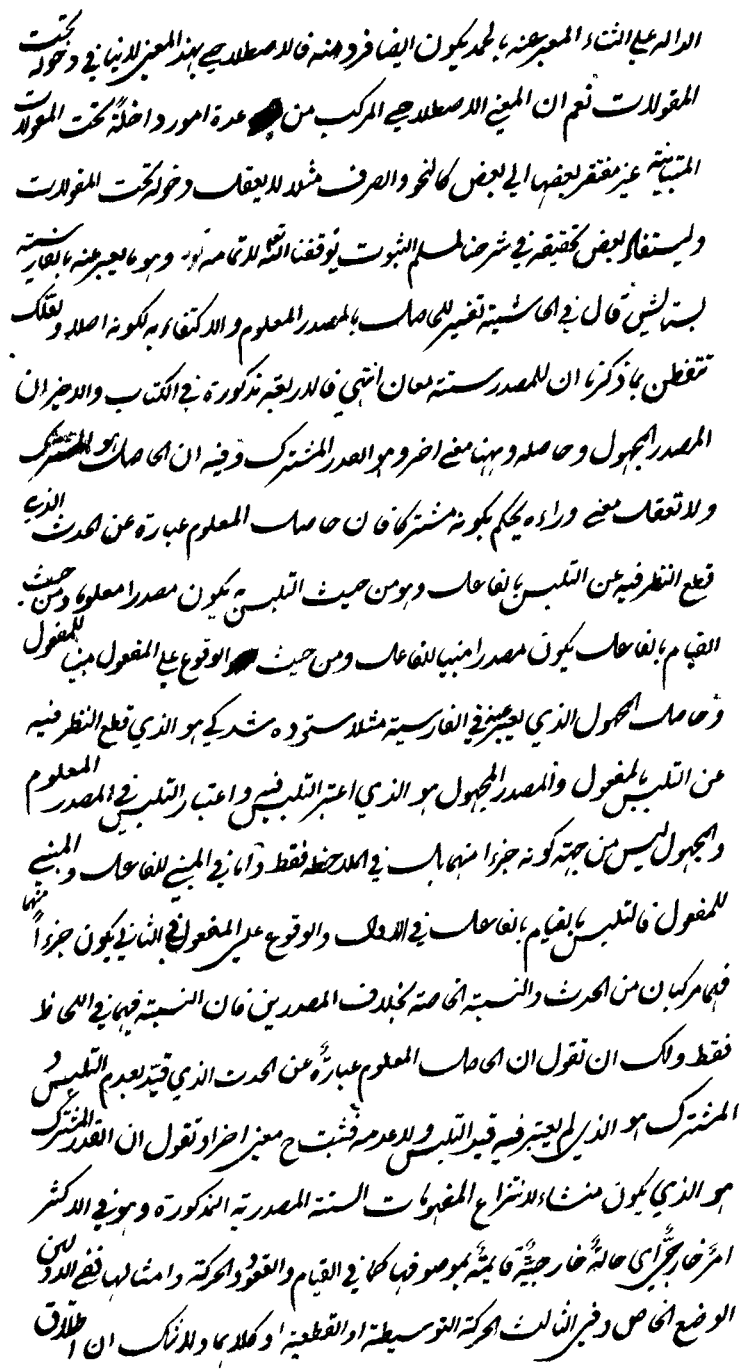 الدالة علي الثناء المعبر عنه بالحمد يكون ايضا فردا منه فالاصطلاحي بهذا المعنى لا ينافي دخوله تحت
المقولات نعم ان المعني الاصطلاحي المركب من عدة امور داخلة تحت المقولات
المتباينة غير مفتقر بعضها الي بعض كالنحو والصرف مثلا لا يعقل دخوله تحت المقولات
وليستفاد بعض تحقيقه في شرحنا لمسلم الثبوت يوفقنا الله لاتمامه قوله وهو ما يعبر عنه بالفارسية
بستايش قال في الحاشية تفسير للحاصل بالمصدر المعلوم والاكتفاء به لكونه اصلا ولعلك
تتفطن بما ذكرنا ان للمصدر ستة معان انتهي فالاربعة مذكورة في الكتاب والاخيران
المصدر المجهول وحاصله وههنا معني اخر وهو القدر المشترك وفيه ان الحاصل هو المشترك
ولا تعقل معني وراءه يحكم بكونه مشتركا فان حاصل المعلوم عبارة عن الحدث الذي
قطع النظر فيه عن التلبس بالفاعل وهو من حيث التلبس به يكون مصدرا معلوما ومن حيث
القيام بالفاعل يكون مصدرا مبنيا للفاعل ومن حيث الوقوع علي المفعول مبنيا للمفعول
وحاصل المجهول الذي يعبر عنه في الفارسية مثلا ستوده شدگي هو الذي قطع النظر فيه
عن التلبس بالمفعول والمصدر المجهول هو الذي اعتبر التلبس فيه واعتبار التلبس في المصدر المعلوم
والمجهول ليس من جهة كونه جزءا منهما بل في الملاحظة فقط واما في المبني للفاعل والمبني
للمفعول فالتلبس بالقيام بالفاعل في الاول والوقوع على المفعول في الثاني يكون جزءا منهما
فهما مركبان من الحدث والنسبة الخاصة بخلاف المصدرين فان النسبة فيهما في اللحاظ
فقط ولك ان تقول ان الحاصل المعلوم عبارة عن الحدث الذي قيد بعدم التلبس و
المشترك هو الذي لم يعتبر فيه قيد التلبس ولا عدمه فثبت ح معنى اخر او تقول ان القدر المشترك
هو الذي يكون منشاء لانتزاع المفهومات الستة المصدرية المذكورة وهو في الاكثر
امر خارجي اي حالة خارجية قايمة بموصوفها كما في القيام والقعود والحركة وامثالها ففي الاولين
الوضع الخاص وفي الثالث الحركة التوسطية او القطعية او كلاهما ولا شك ان اطلاق